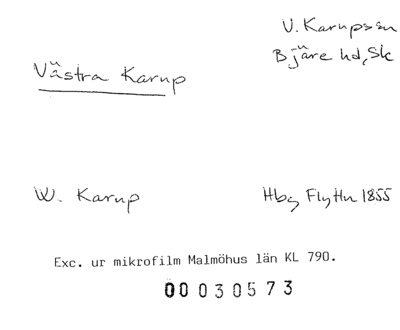 V. Karups sn
Bjäre hd, Sk
Västra Karup
W. Karup
Hbg Flyttn 1855
Exc. ur mikrofilm Malmöhus län KL 790.
00030573